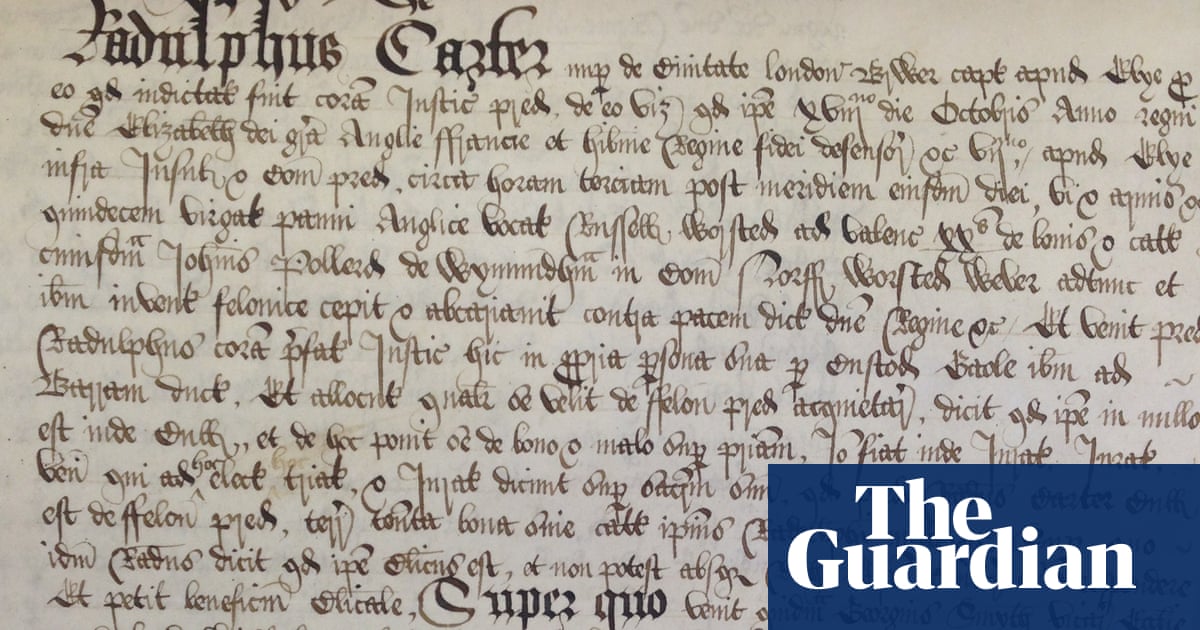 Radulphus Carter nup de Civitate london Brwer capt apud Elye p
eo qd indictat fuit corā Justic pred, de eo viz qd ipē xviijno die Octobris Anno regni
dnē Elizabeth dei grā Anglie ffrancie et hibnie Regine fidei defensor &c vijmo, apud Elye
infra Insul & Com pred, circa horam terciam post meridiem eiusdm diei, vi & armis &c
quindecem virgat panni Anglice vocat Russell worsted ad valenc xxs de bonis & catt
cuiusdm Johnis Pollerd de Wymundhm in Com Norff Worsted Wever adtunc et
ibm invent felonice cepit & abcariavit contra pacem dict dnē Regine &c Et venit pred
Radulphus corā pfat Justic hic in ppria psona sua p Custod Gaole ibm ad
Barram duct, Et allocut qualr sē velit de ffelon pred acquietar, dicit qd ipē in nullo
est inde Culp, et de hoc ponit sē de bono & malo sup priam, Jō fiat inde Jurat Jurat
ven qui ad hoc elect triat, & Jurat dicunt sup sacrm suu qd Carter Culp
est de ffelon pred, terr tenta bona sive catt ipius
idm Radus dicit qd ipē Clicus est, et non potest absqz
Et petit beneficm Clicale, Super quo venit quidm Georgius Smyth
The
Guardian